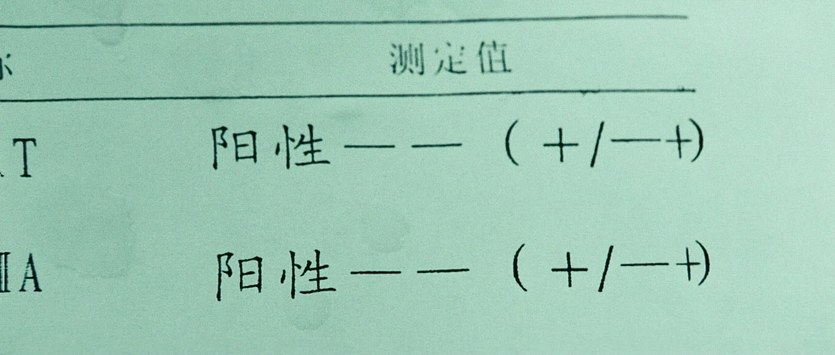 测定值
T 阳性——（+/—+)
A 阳性——（+/—+)